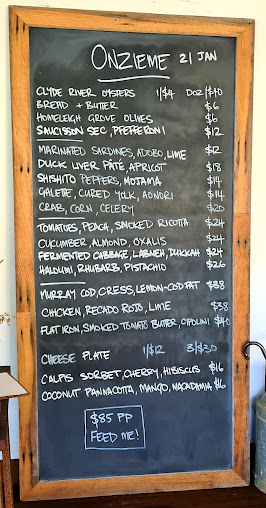 ONZIEME 21 JAN
CLYDE RIVER OYSTERS 1/$4 DOZ/$40
BREAD + BUTTER $6
HOMELEIGH GROVE OLIVES $6
SAUCISSON SEC, PFEFFERONI $12
MARINATED SARDINES, ADOBO, LIME $12
DUCK LIVER PÂTÉ, APRICOT $18
SHISHITO PEPPERS, MOJAMA $14
GALETTE, CURED YOLK, AONORI
CRAB, CORN, CELERY $20
TOMATOES, PEACH, SMOKED RICOTTA $24
CUCUMBER, ALMOND, OXALIS $24
FERMENTED CABBAGE, LABNEH, DUKKAH $24
HALOUMI, RHUBARB, PISTACHIO $26
MURRAY COD, CRESS, LEMON-COD FAT $38
CHICKEN, RECADO ROJO, LIME $38
FLAT IRON, SMOKED TOMATO BUTTER, CIPOLINI $40
CHEESE PLATE 1/$12 3/$30
CALPIS SORBET, CHERRY, HIBISCUS $16
COCONUT PANNACOTTA, MANGO, MACADAMIA $16
$85 PP
FEED ME!